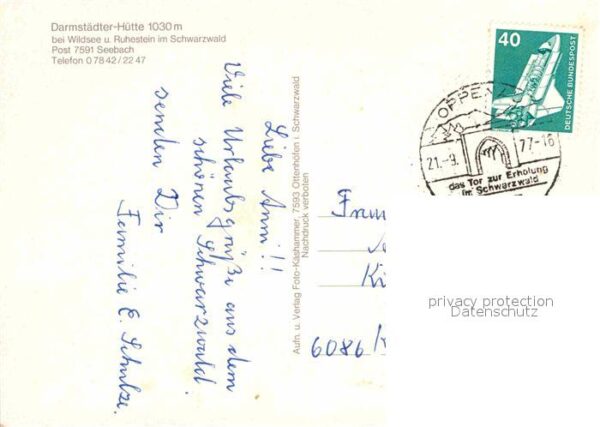 Darmstädter-Hütte 1030 m
bei Wildsee u. Ruhestein im Schwarzwald
Post 7591 Seebach
Telefon 0 78 42 / 22 47
Liebe Anni!!
Viele Urlaubsgrüße aus dem
schönen Schwarzwald.
senden Dir
Familie E. Schulze.
Aufn. u. Verlag Foto-Kashammer, 7593 Ottenhöfen i. Schwarzwald
Nachdruck verboten
40
DEUTSCHE BUNDESPOST
OPPEN
21.-9.
77-16
das Tor zur Erholung
im Schwarzwald
6086
privacy protection
Datenschutz